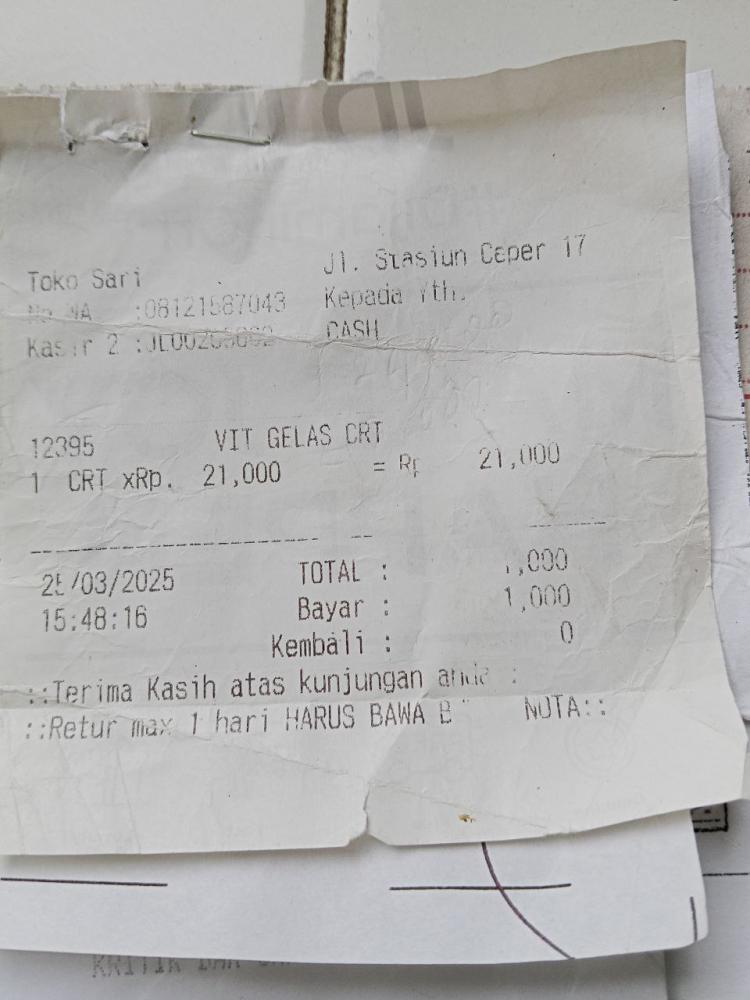 Toko Sari
Jl. Stasiun Ceper 17
No WA :08121587043 Kepada Yth.
Kasir 2 CASH
12395 VIT GELAS CRT
1 CRT xRp. 21,000 = Rp 21,000
/03/2025 TOTAL : ,000
15:48:16 Bayar : 1,000
Kembali : 0
::Terima Kasih atas kunjungan anda :
::Retur max 1 hari HARUS BAWA NOTA::
KRITIK DAN